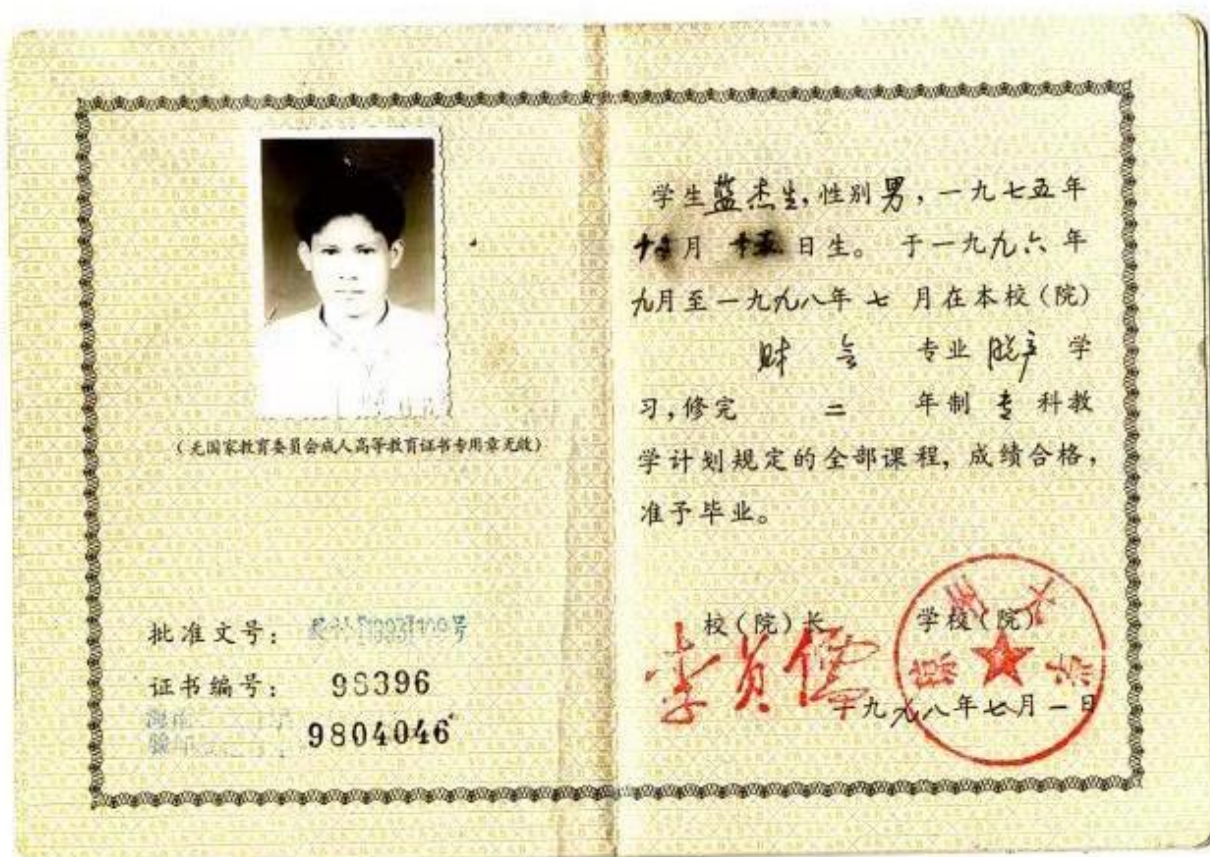 (无国家教育委员会成人高等教育证书专用章无效)
批准文号：
证书编号： 98396
9804046
学生蓝杰生,性别男,一九七五年
月 日生。于一九九六年
九月至一九九八年七月在本校(院)
财会 专业 脱产 学
习,修完 二 年制 专 科教
学计划规定的全部课程,成绩合格,
准予毕业。
校(院)长 学校(院)
一九九八年七月一日